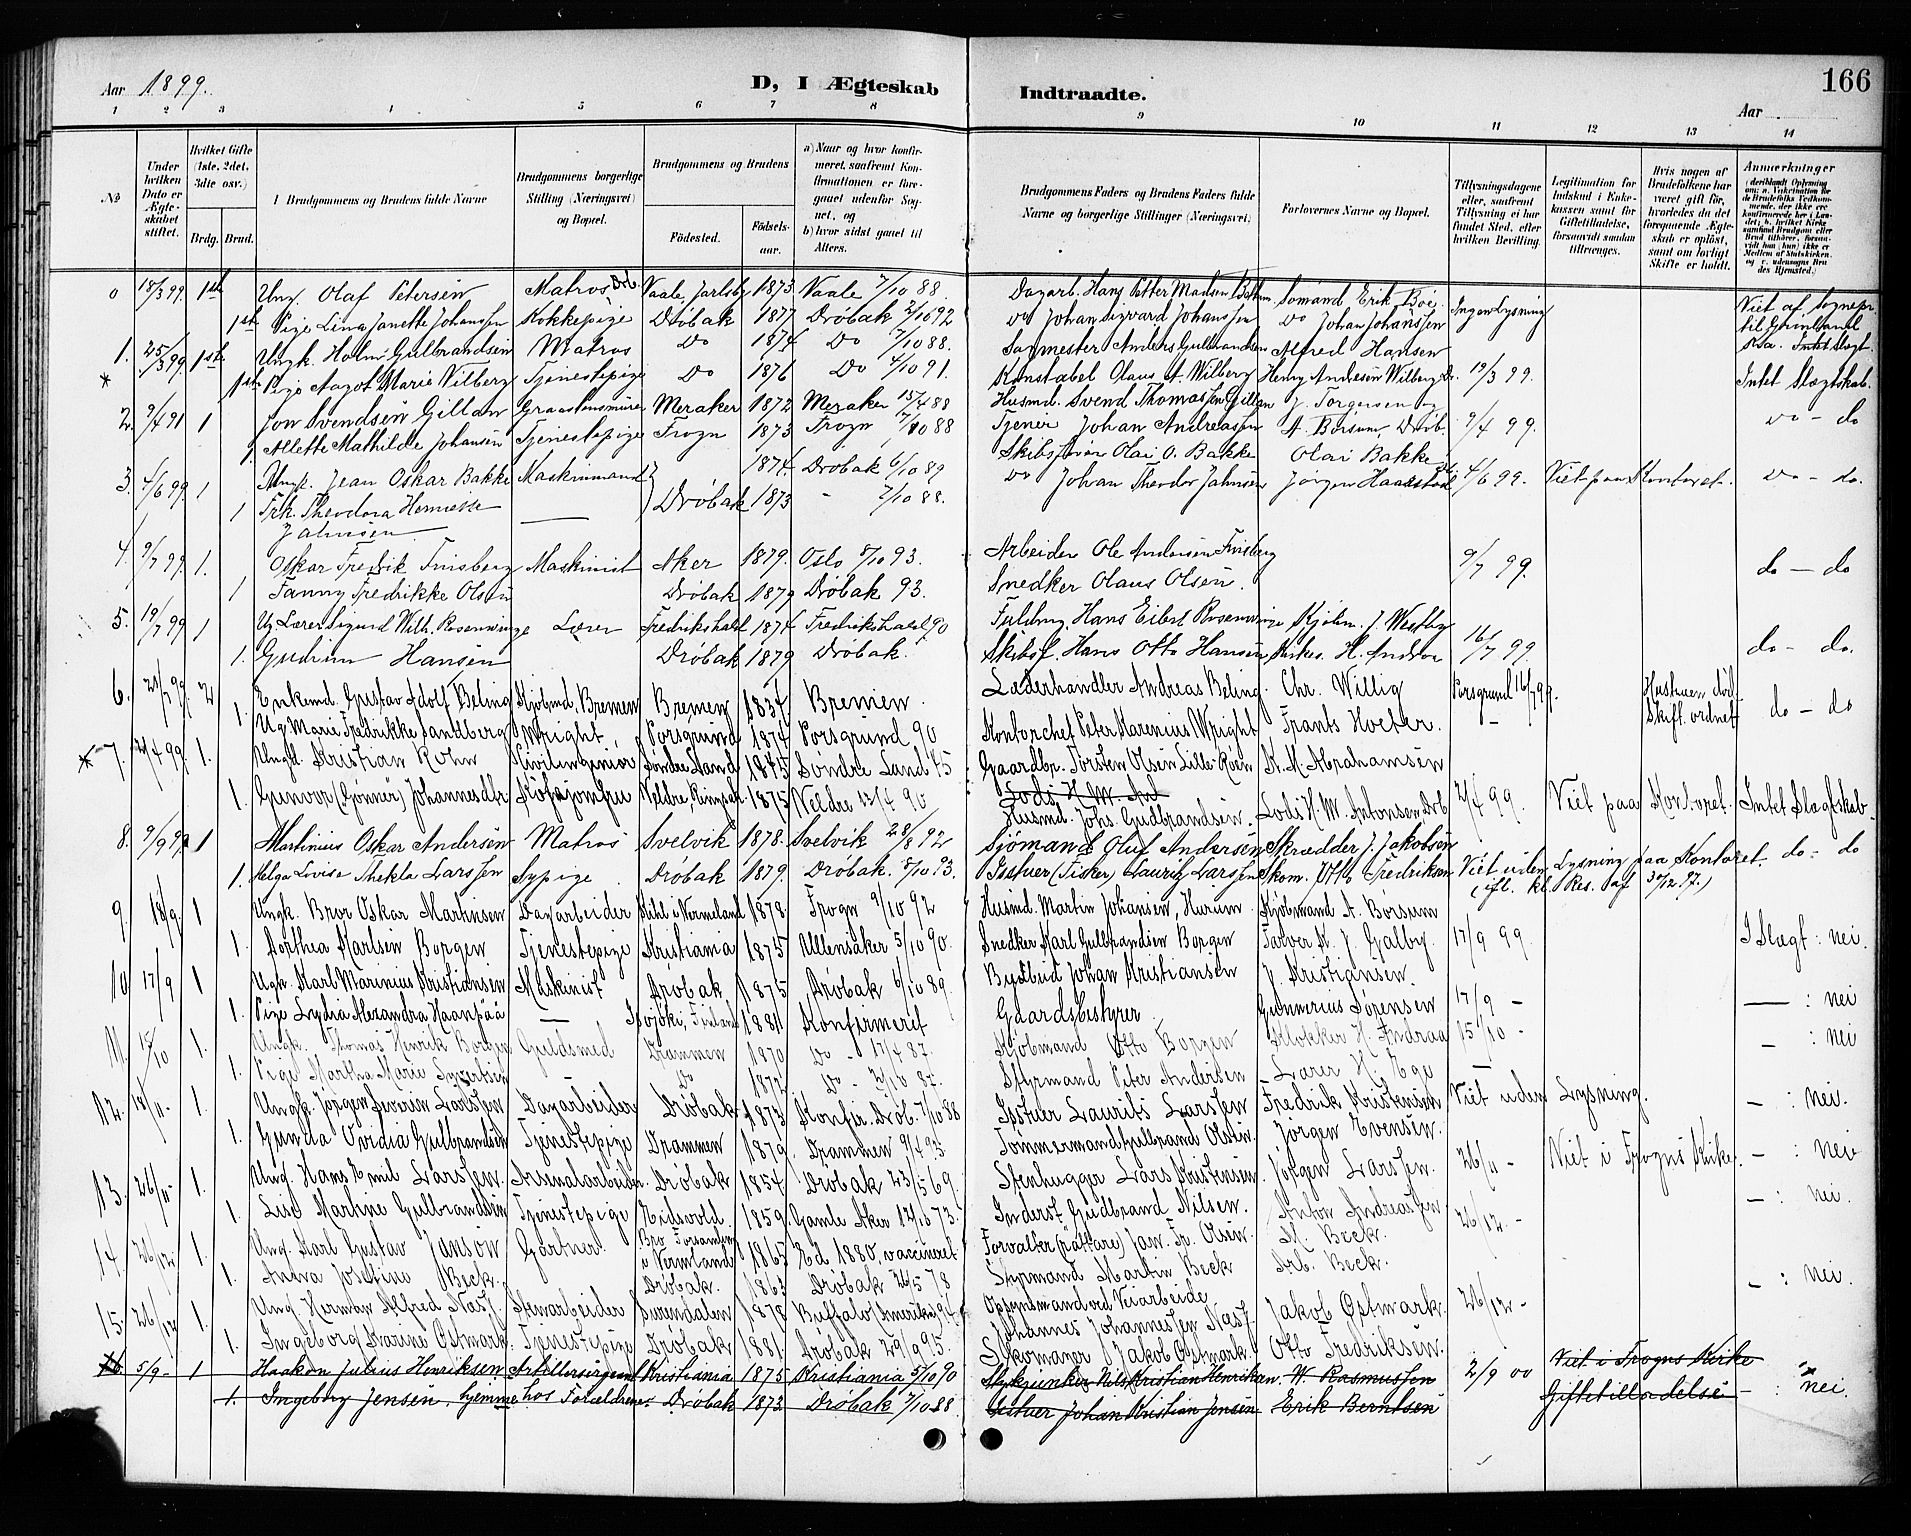 Aar 1899. D, I Ægteskab Indtraadte. Aar 166
1 2 3 4 5 6 7 8 9 10 11 12 13 14
No
Under hvilken Dato er Ægteskabet stiftet.
Hvilket Gifte (1ste, 2det, 3die osv.)
Brdg. Brud.
I Brudgommens og Brudens fulde Navne
Brudgommens borgerlige Stilling (Næringsvei) og Bopæl.
Brudgommens og Brudens
Fødested. Fødselsaar.
a) Naar og hvor konfirmeret, saafremt Konfirmationen er foregaaet udenfor Sognet, og
b) hvor sidst gaaet til Alters.
Brudgommens Faders og Brudens Faders fulde Navne og borgerlige Stillinger (Næringsvei)
Forlovernes Navne og Bopæl.
Tillysningsdagene eller, saafremt Tillysning ei har fundet Sted, efter hvilken Bevilling.
Legitimation for Indskud i Enkekassen samt for Giftetilladelse, forsaavidt saadan tiltrænges.
Hvis nogen af Brudefolkene har været gift før, hvorledes da det foregaaende Ægteskab er opløst, samt om lovligt Skifte er holdt.
Anmerkninger
0 18/3 99. 1ste Ung. Olaf Petersen Matros Drb. Vaale, Jarlsbg 1873 Vaale 7/10 88. Dagarb. Hans Petter Madsen Sømand Erik Bøe. Ingen Lysning Viet af Sognepr.
1ste Pige Lina Janette Johanssen Kokkepige Drøbak 1877 Drøbak 2/10 92 do Johan Sigvard Johanssen do Johan Johanssen
1. 25/3 99 1ste Ungk. Holm Gulbrandsen Matros do 1874 do 7/10 88. Sagmester Anders Gulbrandsen Alfred Hansen
1ste Pige Aagot Marie Wilberg Tjenestepige do 1876 do 4/10 91. Konstabel Olaus A. Wilberg Henry Andresen Wilberg 19/3 99. Intet Slægtskab.
2. 9/4 91 1 Jon Svendsen Gillan Graastensmurer Meraker 1872 Meraker 15/4 88 Husmd. Svend Thomassen Gillan J. Torgersen og
1. Allette Mathilde Johansen Tjenestepige Frogn 1873 Frogn 7/10 88 Tjener Johan Andreassen A. Borsum, Drøb. 9/4 99. do - do
3. 4/6 99 1 Ungk. Jean Oskar Bakke Maskinmand 1874 Drøbak 6/10 89 Skibsfører Olai O. Bakke Olai Bakke
1 Frk. Theodora Henriette Jahnsen Drøbak 1873 - 7/10 88. do Johan Theodor Jahnsen Jørgen Haarstad 4/6 99. Viet paa Kontoret. do - do.
4. 9/7 99. 1. Oskar Fredrik Finsberg Maskinist Aker 1879. Oslo 8/10 93. Arbeider Ole Andersen Finsberg 9/7 99. do - do
1 Fanny Fredrikke Olsen Drøbak 1879 Drøbak 93. Snedker Olaus Olsen.
5. 19/7 99 1 Ug. Lærer Sigurd Wilh. Rosenvinge Lærer Fredrikshald 1874 Fredrikshald 90 Fuldm. Hans Eiler Rosenvinge Kjøbm. J. Westby
1. Gudrun Hansen Drøbak 1879 Drøbak. Skibsf. Hans Otto Hansen Kirkes. H. Andraa 16/7 99. do - do.
6. 21/7 99. 2 Enkemd. Gustav Adolf Beling Kjøbmd. Bremen Bremen 1834 Bremen. Læderhandler Andreas Beling. Chr. Willig Porsgrund 16/7 99. Hustruen død. Skift. ordnet do - do
1. Ug. Marie Fredrikke Sandberg Wright. Porsgrund 1874 Porsgrund 90 Kontorchef Peter Marenius Wright Frants Hoeter. -
7. 21/4 99. 1. Ungk. Kristian Rohn Civilingeniør Søndre Land 1875 Søndre Land Gaardbr. Torsten Olsen Lille-Roen K. M. Abrahamsen
1. Gunvor (Gønner) Johannesdtr. Kokkejomfru Veldre, Ringsak. 1875 Veldre 13/4 90 Husmd. Johs. Gudbrandsen. Lods H. M. Antonsen Drb. 21/4 99. Viet paa Kontoret. Intet Slægtskab.
8. 9/9 99. 1 Martinius Oskar Andersen Matros Svelvik 1878. Svelvik 28/8 92 Sjømand Oluf Andersen Skrædder J. Jakobsen
1. Helga Lovise Thekla Larssen Sypige Drøbak 1879. Drøbak. 8/10 93. Isstuer (Fisker) Lauritz Larssen Skom. Otto Fredriksen Viet uden Lysning paa Kontoret. do - do
9. 18/9. 1 Ungk. Bror Oskar Martinsen Dagarbeider Kihl i Vermeland 1878. Frogn 9/10 92 Husmd. Martin Johansen, Hurum. Kjøbmand A. Borsum
1. Dorthea Karlsen Borgen Tjenestepige Kristiania 1875 Ullensaker 5/10 90. Snedker Karl Gulbrandsen Borgen Farver K. J. Galby. 17/9 99. I Slægt: nei.
10 17/9 1 Ugk. Karl Marinius Kristiansen Maskinist Drøbak 1875 Drøbak 6/10 89. Bydbud Johan Kristiansen J. Kristiansen.
1. Pige Lydia Alexandra Haanpää — Isojoki, Finland 1881. Konfirmeret Gaardsbestyrer Gunnerius Sørensen 17/9 - — : nei
11. 15/10 1. Ungk. Thomas Henrik Borgen Guldsmed Drammen 1870 do - 17/4 87. Kjøbmand Otto Borgen Klokker H. Andraa 15/10 - - : nei
1. Pige Martha Marie Syvertsen - do 1872 do - 2/10 87. Styrmand Peter Andersen Lærer H. Ege —
12. 18/11- 1. Ungk. Jørgen Severin Larssen Dagarbeider Drøbak 1873 Konfir. Drøb. 7/10 88 Isstuer Laurits Larssen Fredrik Kristensen Viet uden Lysning. - : nei.
1. Gunda Ovidia Gulbrandsen Tjenestepige Drammen 1879. Drammen 9/4 93 Tømmermand Gulbrand Olsen. Jørgen Evensen.
13. 26/11- 1. Ung. Hans Emil Larssen Arsenalarbeider Drøbak 1854 Drøbak 23/5 69. Stenhugger Lars Kristensen. Jørgen Larssen. 26/11 - Viet i Frogns Kirke. - : nei
1. Lise Martine Gulbrandsen Tjenestepige Eidsvold. 1859. Gamle Aker 12/10 73. Inderst Gudbrand Nilsen. Anton Andreassen
14. 26/12 1. Ung. Karl Gustav Janson Gartner. Bro Forsamling i Vermland 1865 Ed. 1880, vaccineret Forvalter (rättare) Jan. Fr. Olsen. M. Beck. 26/12 - - : nei.
1. Anna Josefine Beck. Drøbak. 1863 Drøbak 26/5 78 Styrmand Martin Beck Arb. Beck.
15. 26/12 1. Ung. Herman Alfred Næss. Stenarbeider Surendalen 1878 Buffalo (Amerika) 94. Opsynsmand ved Veiarbeide Johannes Johannessen Næss Jakob Ostmark. 26/12 - - : nei.
1. Ingeborg Karine Ostmark. Tjenestepige Drøbak 1881. Drøbak 29/9 95. Skomager Jakob Ostmark. Otto Fredriksen.
16 5/9- 1 Haakon Julius Henriksen Artillersergeant Kristiania 1875 Kristiania 5/10 90 Nils Kristian Henriksen. W. Rasmussen 2/9 00 Viet i Frogns Kirke
1. Ingeborg Jensen. hjemme hos Forældrene. Drøbak 1873 Drøbak 7/10 88. Isstuer Johan Kristian Jensen Erik Berntsen Giftetilladelse - : nei.